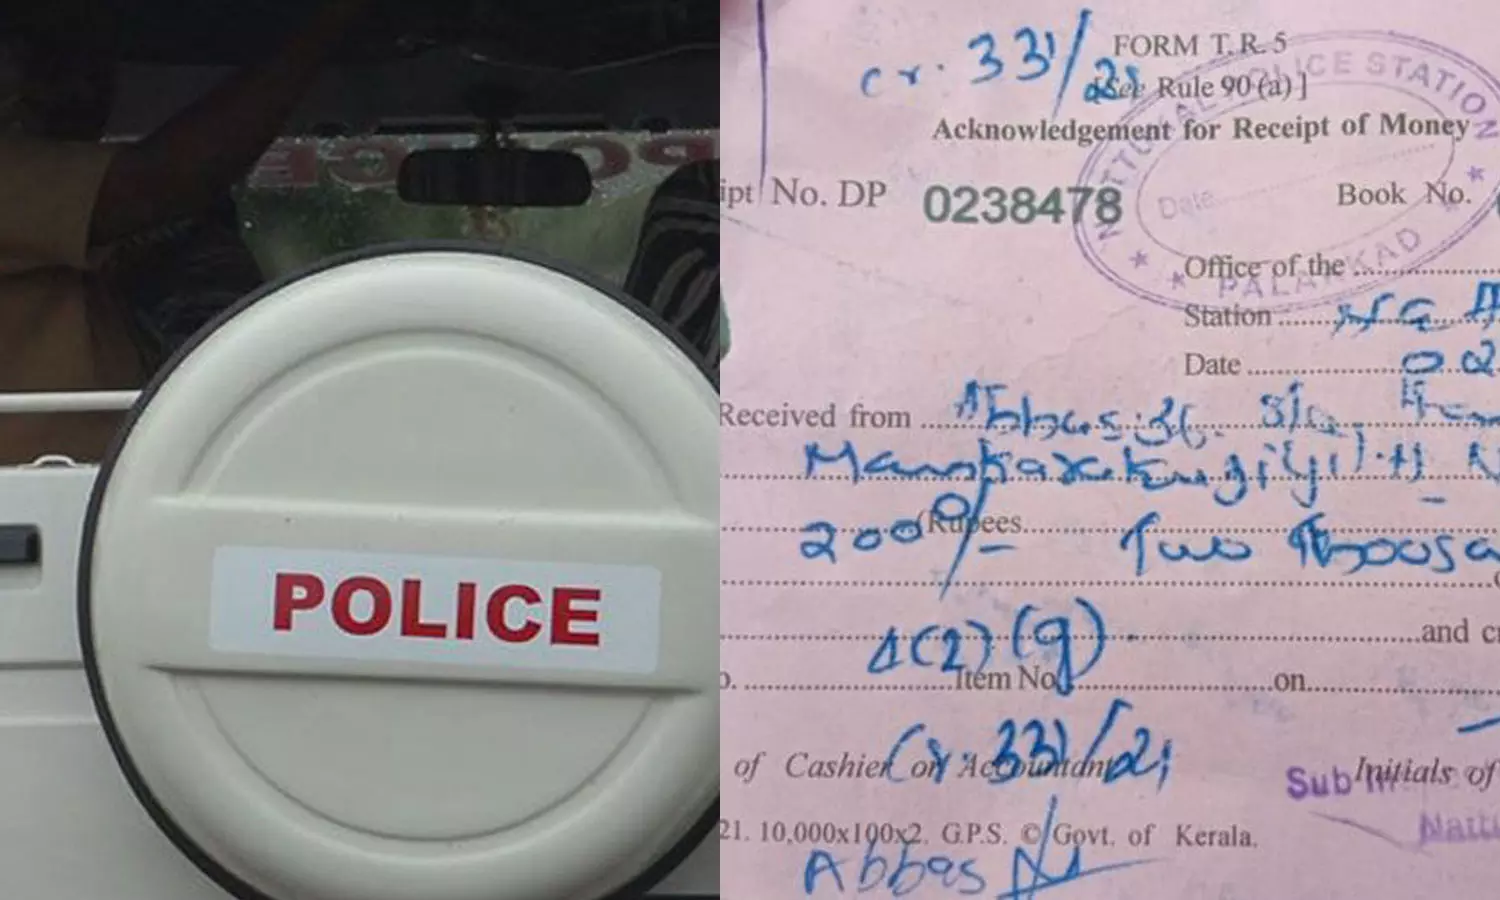 POLICE
POLICE
cr. 331/21
FORM T. R. 5
[See Rule 90 (a) ]
Acknowledgement for Receipt of Money
ipt No. DP 0238478 Book No.
NATTUKAL POLICE STATION
Date
PALAKKAD
Office of the
Station
Date 02
Received from Abbas 36. S/o.
2000/- (Rupees Two Thousa
4(2) (g)
and c
Item No. on
Cr. 331/21
of Cashier or Accountant Initials of
Sub In
Nattu
21. 10,000x100x2. G.P.S. © Govt. of Kerala.
Abbas